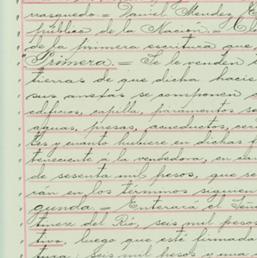 nasquedo = Daniel Mendez, E
público de la Nación.
de la primera escritura que
Primera. = Se le venden
tierras de que dicha hacie
sus anetas se componen
edificios, capilla, paramentos
aguas, presas, acueductos, cer
tes y cuanto hubiere en dichas
teneciente a la vendedora, en
de sesenta mil pesos, que se
rán en los términos siguien
gunda = Enterará el Señ
tnere del Rio, seis mil pesos
tiva, luego que esté firmada
tura: Seis mil pesos y una